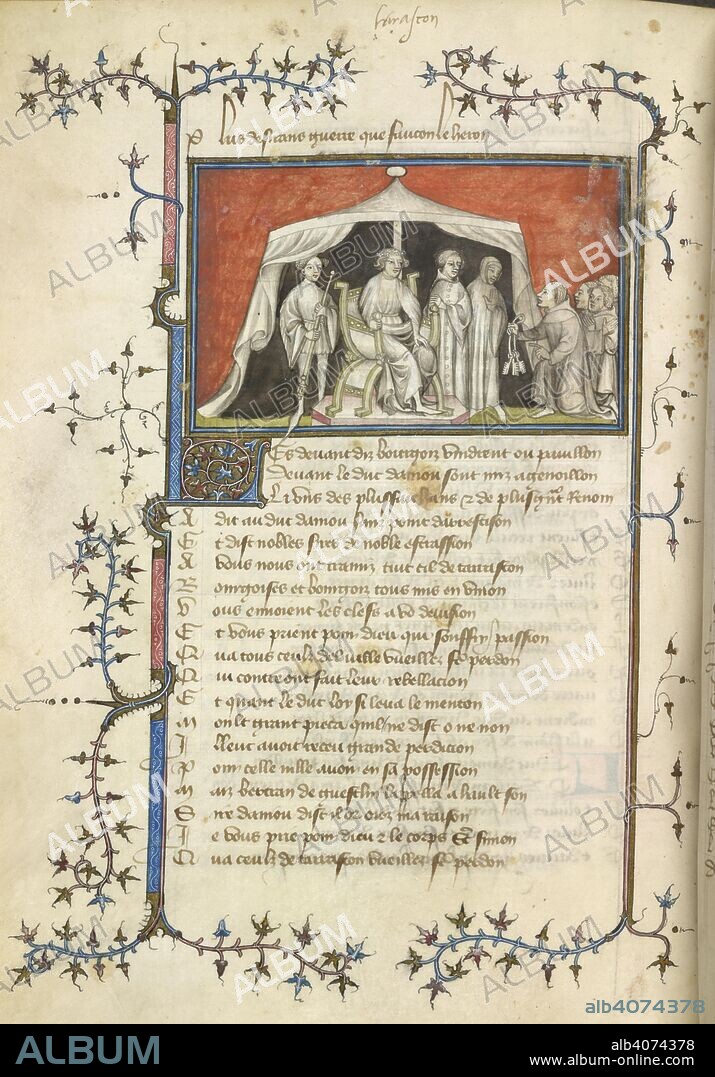 tarascon
Plus desirans guerre que faucon le heron
Les devant diz bourgois vindrent ou pavillon
Devant le duc daniou sont mis agenoillon
Li uns des plus & de plus grant Renom
A dit au duc daniou sans point
Et dist nobles sires de noble
A vous nous ont tramis tuit cil de tarrascon
Bourgoises et bourgois tous mis en union
Vous envoient les clefs a vo devision
Et vous prient pour dieu qui souffry passion
Qua tous ceulx de la ville vueillez fe pardon
Qui contre ont fait leur rebellacion
Et quant le duc loy si leva le menton
Moult grant piece quil ne dist o ne non
Illeuc avoit receu grande perdicion
Pour celle ville avoir en sa possession
Mais bertran de guesclin lappella a hault son
Sire daniou dist il or oiez ma raison
Je vous prie pour dieu & le corps St simon
Qua ceulx de tarraston vueillez fe pardon
ALBUM
alb4074378
ALBUM
alb4074378
www.album-online.com